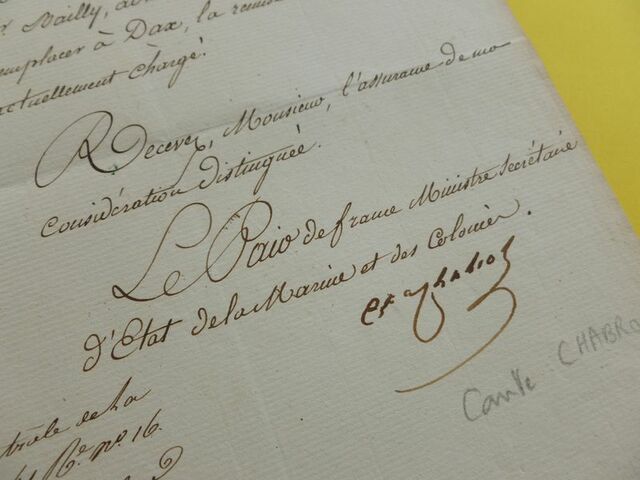 Mailly,
remplacer à Dax, la
actuellement chargé.
Recevez, Monsieur, l'assurance de ma
Considération distinguée.
Le Pair de france Ministre Secrétaire
d'Etat de la Marine et des Colonies.
Cte Chabrol
Comte CHABRO
de la
nº 16.